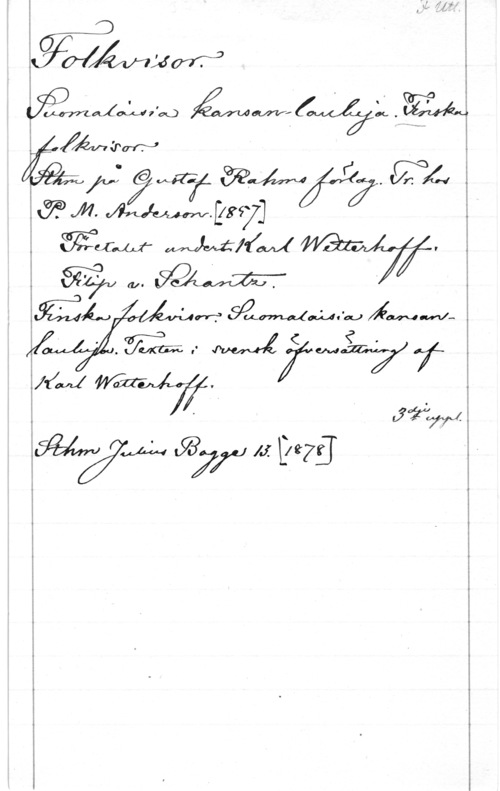 F Utl.
Folkvisor.
Suomalaisia kansan-lauluja. Finska
folkvisor.
Sthm på Gustaf Rahms förlag. Tr. hos
P. M. Anderson. [1857]
Företalet undert. Karl Wetterhoff.
Filip v. Schantz.
Finska folkvisor. Suomalaisia kansan-
lauluja. Texten i svensk öfversättning af
Karl Wetterhoff.
3dje uppl.
Sthm Julius Bagge 13. [1878]